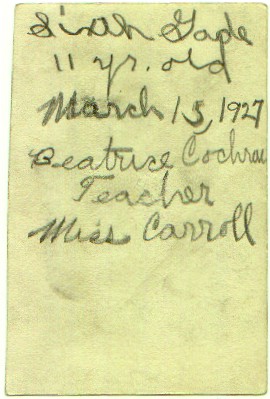 Sixth Gade
11 yr. old
March 15, 1927
Beatrice Cochran
Teacher
Miss Carroll